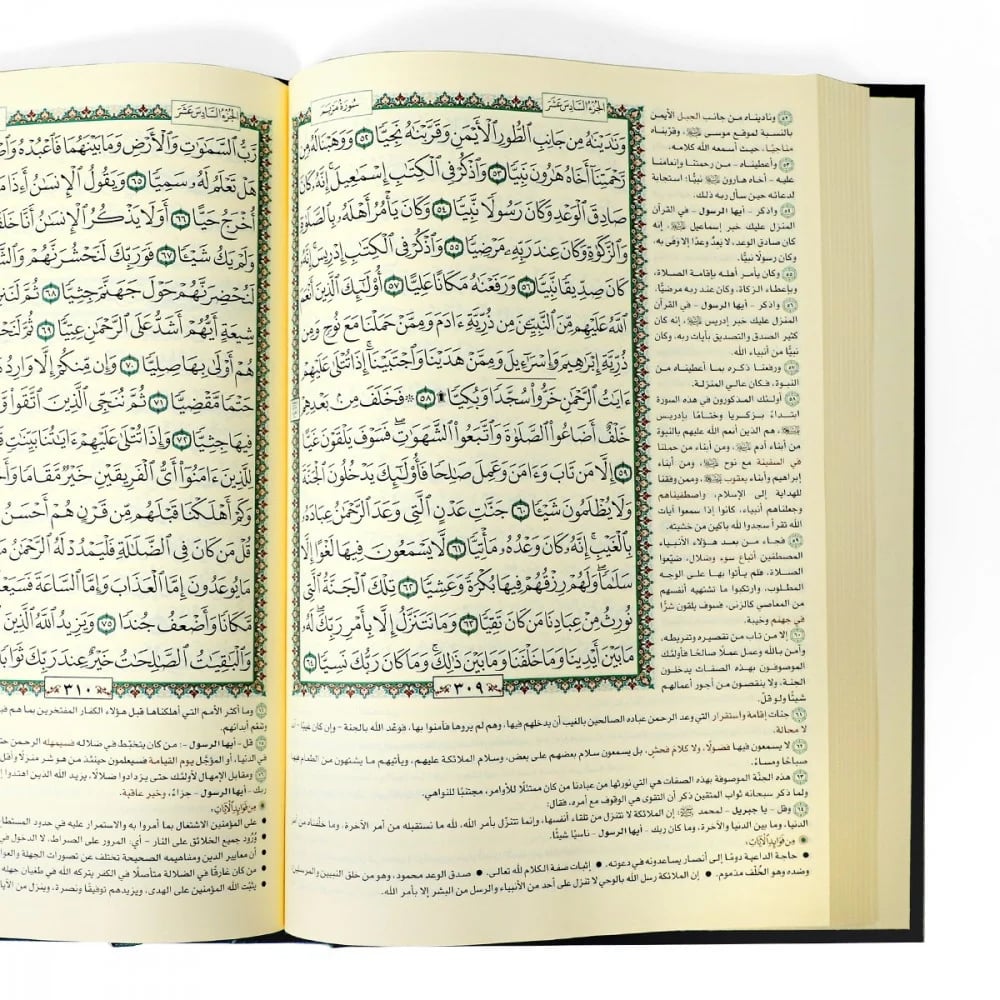 الجُزْءُ السَّادِسَ عَشَرَ
سُورَةُ مَرْيَمَ
وَنَٰدَيۡنَٰهُ مِن جَانِبِ ٱلطُّورِ ٱلۡأَيۡمَنِ وَقَرَّبۡنَٰهُ نَجِيّٗا ٥٢ وَوَهَبۡنَا لَهُۥ مِن
رَّحۡمَتِنَآ أَخَاهُ هَٰرُونَ نَبِيّٗا ٥٣ وَٱذۡكُرۡ فِي ٱلۡكِتَٰبِ إِسۡمَٰعِيلَۚ إِنَّهُۥ كَانَ
صَادِقَ ٱلۡوَعۡدِ وَكَانَ رَسُولٗا نَّبِيّٗا ٥٤ وَكَانَ يَأۡمُرُ أَهۡلَهُۥ بِٱلصَّلَوٰةِ
وَٱلزَّكَوٰةِ وَكَانَ عِندَ رَبِّهِۦ مَرۡضِيّٗا ٥٥ وَٱذۡكُرۡ فِي ٱلۡكِتَٰبِ إِدۡرِيسَۚ إِنَّهُۥ
كَانَ صِدِّيقٗا نَّبِيّٗا ٥٦ وَرَفَعۡنَٰهُ مَكَانًا عَلِيًّا ٥٧ أُوْلَٰٓئِكَ ٱلَّذِينَ أَنۡعَمَ
ٱللَّهُ عَلَيۡهِم مِّنَ ٱلنَّبِيِّـۧنَ مِن ذُرِّيَّةِ ءَادَمَ وَمِمَّنۡ حَمَلۡنَا مَعَ نُوحٖ وَمِن
ذُرِّيَّةِ إِبۡرَٰهِيمَ وَإِسۡرَٰٓءِيلَ وَمِمَّنۡ هَدَيۡنَا وَٱجۡتَبَيۡنَآۚ إِذَا تُتۡلَىٰ عَلَيۡهِمۡ
ءَايَٰتُ ٱلرَّحۡمَٰنِ خَرُّواْۤ سُجَّدٗاۤ وَبُكِيّٗا۩ ٥٨ ۞فَخَلَفَ مِنۢ بَعۡدِهِمۡ
خَلۡفٌ أَضَاعُواْ ٱلصَّلَوٰةَ وَٱتَّبَعُواْ ٱلشَّهَوَٰتِۖ فَسَوۡفَ يَلۡقَوۡنَ غَيًّا
٥٩ إِلَّا مَن تَابَ وَءَامَنَ وَعَمِلَ صَٰلِحٗا فَأُوْلَٰٓئِكَ يَدۡخُلُونَ ٱلۡجَنَّةَ
وَلَا يُظۡلَمُونَ شَيۡـٔٗا ٦٠ جَنَّٰتِ عَدۡنٍ ٱلَّتِي وَعَدَ ٱلرَّحۡمَٰنُ عِبَادَهُۥ
بِٱلۡغَيۡبِۚ إِنَّهُۥ كَانَ وَعۡدُهُۥ مَأۡتِيّٗا ٦١ لَّا يَسۡمَعُونَ فِيهَا لَغۡوًا إِلَّا
سَلَٰمٗاۖ وَلَهُمۡ رِزۡقُهُمۡ فِيهَا بُكۡرَةٗ وَعَشِيّٗا ٦٢ تِلۡكَ ٱلۡجَنَّةُ ٱلَّتِي
نُورِثُ مِنۡ عِبَادِنَا مَن كَانَ تَقِيّٗا ٦٣ وَمَا نَتَنَزَّلُ إِلَّا بِأَمۡرِ رَبِّكَۖ لَهُۥ
مَا بَيۡنَ أَيۡدِينَا وَمَا خَلۡفَنَا وَمَا بَيۡنَ ذَٰلِكَۚ وَمَا كَانَ رَبُّكَ نَسِيّٗا ٦٤
٣٠٩
٥٢ وناديناه من جانب الجبل الأيمن
بالنسبة لموقع موسى ﷺ، وقرّبناه
مناجيًا، حيث أسمعه الله كلامه.
٥٣ وأعطيناه - من رحمتنا وإنعامنا
عليه - أخاه هارون ﷺ نبيًّا؛ استجابة
لدعائه حين سأل ربه ذلك.
٥٤ واذكر - أيها الرسول - في القرآن
المنزل عليك خبر إسماعيل ﷺ، إنه
كان صادق الوعد، لا يعدُ وعدًا إلا وفى به،
وكان رسولًا نبيًّا.
٥٥ وكان يأمر أهله بإقامة الصلاة،
وبإعطاء الزكاة، وكان عند ربه مرضيًّا.
٥٦ واذكر - أيها الرسول - في القرآن
المنزل عليك خبر إدريس ﷺ، إنه كان
كثير الصدق والتصديق بآيات ربه، وكان
نبيًّا من أنبياء الله.
٥٧ ورفعنا ذكره بما أعطيناه من
النبوة، فكان عالي المنزلة.
٥٨ أولئك المذكورون في هذه السورة
ابتداءً بزكريا وختامًا بإدريس
ﷺ، هم الذين أنعم الله عليهم بالنبوة
من أبناء آدم ﷺ، ومن أبناء من حملنا
في السفينة مع نوح ﷺ، ومن أبناء
إبراهيم وأبناء يعقوب ﷺ، وممن وفقنا
للهداية إلى الإسلام، واصطفيناهم
وجعلناهم أنبياء، كانوا إذا سمعوا آيات
الله تقرأ سجدوا لله باكين من خشيته.
٥٩ فجاء من بعد هؤلاء الأنبياء
المصطفين أتباع سوء وضلال، ضيّعوا
الصلاة، فلم يأتوا بها على الوجه
المطلوب، وارتكبوا ما تشتهيه أنفسهم
من المعاصي كالزنى، فسوف يلقون شرًّا
في جهنم وخيبة.
٦٠ إلا من تاب من تقصيره وتفريطه،
وآمن بالله وعمل عملًا صالحًا فأولئك
الموصوفون بهذه الصفات يدخلون
الجنة، ولا ينقصون من أجور أعمالهم
شيئًا ولو قلّ.
٦١ جنات إقامة واستقرار التي وعد الرحمن عباده الصالحين بالغيب أن يدخلهم فيها، وهم لم يروها فآمنوا بها، فوعْد الله بالجنة - وإن كان غيبًا - آتٍ
لا محالة.
٦٢ لا يسمعون فيها فضولًا، ولا كلام فحش، بل يسمعون سلام بعضهم على بعض، وسلام الملائكة عليهم، ويأتيهم ما يشتهون من الطعام فيها
صباحًا ومساءً.
٦٣ هذه الجنّة الموصوفة بهذه الصفات هي التي نورثها من عبادنا من كان ممتثلًا للأوامر، مجتنبًا للنواهي.
ولما ذكر سبحانه ثواب المتقين ذكر أن التقوى هي الوقوف مع أمره، فقال:
٦٤ وقل - يا جبريل - لمحمد ﷺ: إن الملائكة لا تتنزل من تلقاء أنفسها، وإنما تتنزّل بأمر الله، لله ما نستقبله من أمر الآخرة، وما خلّفناه من أمر
الدنيا، وما بين الدنيا والآخرة، وما كان ربك - أيها الرسول - ناسيًا شيئًا.
مِن فَوَائِدِ الآيَاتِ:
• حاجة الداعية دومًا إلى أنصار يساعدونه في دعوته. • إثبات صفة الكلام لله تعالى. • صدق الوعد محمود، وهو من خلق النبيين والمرسلين،
وضده وهو الخُلْف مذموم. • إن الملائكة رسل الله بالوحي لا تنزل على أحد من الأنبياء والرسل من البشر إلا بأمر الله.
الجُزْءُ السَّادِسَ عَشَرَ
رَّبُّ ٱلسَّمَٰوَٰتِ وَٱلۡأَرۡضِ وَمَا بَيۡنَهُمَا فَٱعۡبُدۡهُ
هَلۡ تَعۡلَمُ لَهُۥ سَمِيّٗا ٦٥ وَيَقُولُ ٱلۡإِنسَٰنُ أَءِذَا مَا
أُخۡرَجُ حَيًّا ٦٦ أَوَلَا يَذۡكُرُ ٱلۡإِنسَٰنُ أَنَّا
وَلَمۡ يَكُ شَيۡـٔٗا ٦٧ فَوَرَبِّكَ لَنَحۡشُرَنَّهُمۡ
لَنُحۡضِرَنَّهُمۡ حَوۡلَ جَهَنَّمَ جِثِيّٗا ٦٨ ثُمَّ
شِيعَةٍ أَيُّهُمۡ أَشَدُّ عَلَى ٱلرَّحۡمَٰنِ عِتِيّٗا ٦٩ ثُمَّ
هُمۡ أَوۡلَىٰ بِهَا صِلِيّٗا ٧٠ وَإِن مِّنكُمۡ إِلَّا وَارِدُهَا
حَتۡمٗا مَّقۡضِيّٗا ٧١ ثُمَّ نُنَجِّي ٱلَّذِينَ ٱتَّقَواْ
فِيهَا جِثِيّٗا ٧٢ وَإِذَا تُتۡلَىٰ عَلَيۡهِمۡ ءَايَٰتُنَا بَيِّنَٰتٖ
لِلَّذِينَ ءَامَنُوٓاْ أَيُّ ٱلۡفَرِيقَيۡنِ خَيۡرٞ مَّقَامٗا
وَكَمۡ أَهۡلَكۡنَا قَبۡلَهُم مِّن قَرۡنٍ هُمۡ أَحۡسَنُ
قُلۡ مَن كَانَ فِي ٱلضَّلَٰلَةِ فَلۡيَمۡدُدۡ لَهُ ٱلرَّحۡمَٰنُ
مَا يُوعَدُونَ إِمَّا ٱلۡعَذَابَ وَإِمَّا ٱلسَّاعَةَ
مَّكَانٗا وَأَضۡعَفُ جُندٗا ٧٥ وَيَزِيدُ ٱللَّهُ ٱلَّذِينَ
وَٱلۡبَٰقِيَٰتُ ٱلصَّٰلِحَٰتُ خَيۡرٌ عِندَ رَبِّكَ ثَوَابٗا
٣١٠
وما أكثر الأمم التي أهلكناها قبل هؤلاء الكفار المفتخرين بما هم
وتنعم أبدانهم.
٧٥ قل - أيها الرسول -: من كان يتخبط في ضلاله فسيمهله الرحمن
في الدنيا، أو المؤجَّل يوم القيامة فسيعلمون حينئذ من هو شر منزلًا وأقل
٧٦ ومقابل الإمهال لأولئك حتى يزدادوا ضلالًا، يزيد الله الذين اهتدوا
ربك - أيها الرسول - جزاءً، وخير عاقبة.
مِن فَوَائِدِ الآيَاتِ:
• على المؤمنين الاشتغال بما أمروا به والاستمرار عليه في حدود
• وُرُود جميع الخلائق على النار - أي: المرور على الصراط، لا الدخول
• أن معايير الدين ومفاهيمه الصحيحة تختلف عن تصورات الجهلة
• من كان غارقًا في الضلالة متأصلًا في الكفر يتركه الله في طغيان
• يثبّت الله المؤمنين على الهدى، ويزيدهم توفيقًا ونصرة، وينزل من